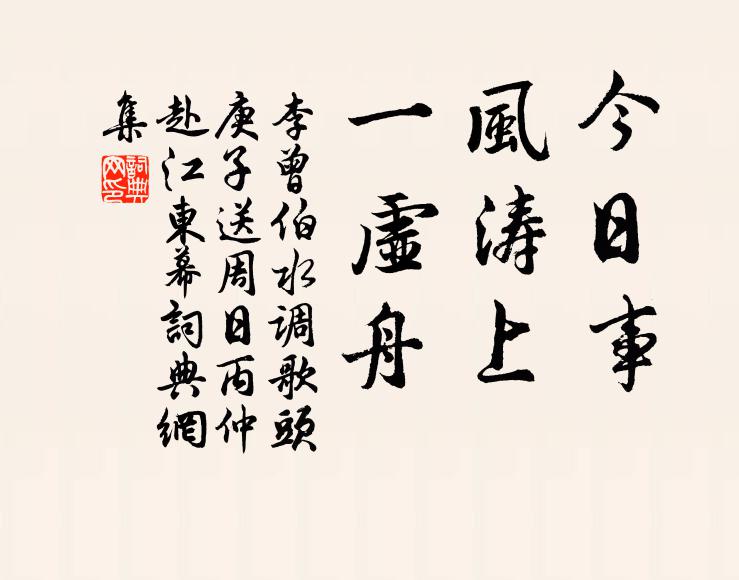 今日事
風涛上
一虛舟
李曾伯水调歌頭
庚子送周日丙仲
赴江東幕詞典網
集
詞典網印